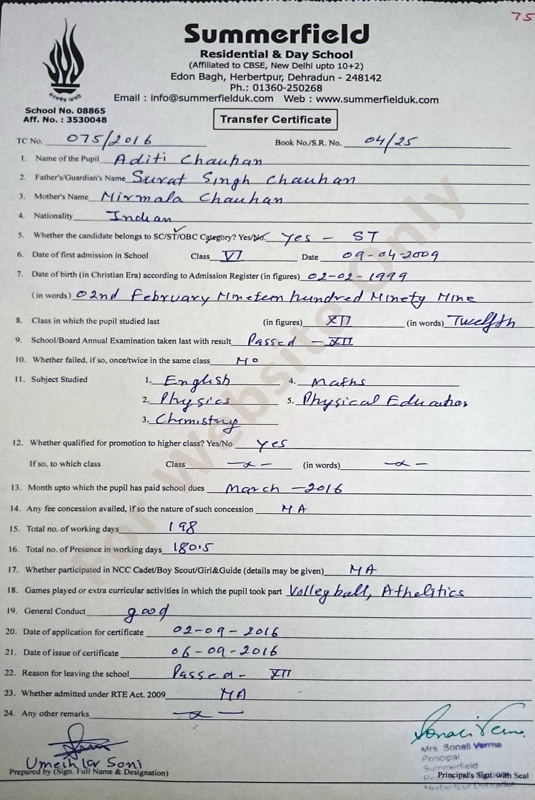 75
Summerfield
Residential & Day School
(Affiliated to CBSE, New Delhi upto 10+2)
Edon Bagh, Herbertpur, Dehradun - 248142
Ph.: 01360-250268
Email : info@summerfielduk.com Web : www.summerfielduk.com
School No. 08865
Aff. No. : 3530048
Transfer Certificate
TC No. 075/2016 Book No./S.R. No. 04/25
1. Name of the Pupil Aditi Chauhan
2. Father's/Guardian's Name Surat Singh Chauhan
3. Mother's Name Nirmala Chauhan
4. Nationality Indian
5. Whether the candidate belongs to SC/ST/OBC Category? Yes/No. Yes - ST
6. Date of first admission in School Class VI Date 09-04-2009
7. Date of birth (in Christian Era) according to Admission Register (in figures) 02-02-1999
(in words) 02nd February Nineteen hundred Ninety Nine
8. Class in which the pupil studied last (in figures) XII (in words) Twelfth
9. School/Board Annual Examination taken last with result Passed - XII
10. Whether failed, if so, once/twice in the same class No
11. Subject Studied 1. English 4. Maths
2. Physics 5. Physical Education
3. Chemistry
12. Whether qualified for promotion to higher class? Yes/No Yes
If so, to which class Class -x- (in words) -x-
13. Month upto which the pupil has paid school dues March - 2016
14. Any fee concession availed, if so the nature of such concession NA
15. Total no. of working days 198
16. Total no. of Presence in working days 180.5
17. Whether participated in NCC Cadet/Boy Scout/Girl&Guide (details may be given) NA
18. Games played or extra curricular activities in which the pupil took part Volleyball, Athelitics
19. General Conduct good
20. Date of application for certificate 02-09-2016
21. Date of issue of certificate 06-09-2016
22. Reason for leaving the school Passed - XII
23. Whether admitted under RTE Act. 2009 NA
24. Any other remarks -x-
Sonali Verma
Mrs. Sonali Verma
Principal
Summerfield
Soni
Prepared by (Sign. Full Name & Designation) Principal's Sign with Seal
Herbertpur Dehradun
For Website Only